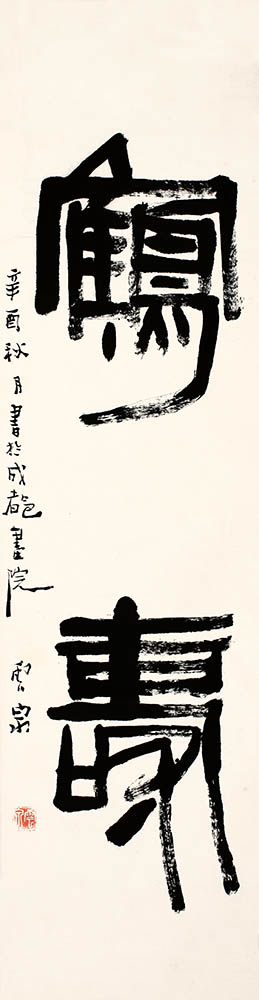 鶴壽
辛酉秋月書於成都畫院
雲泉